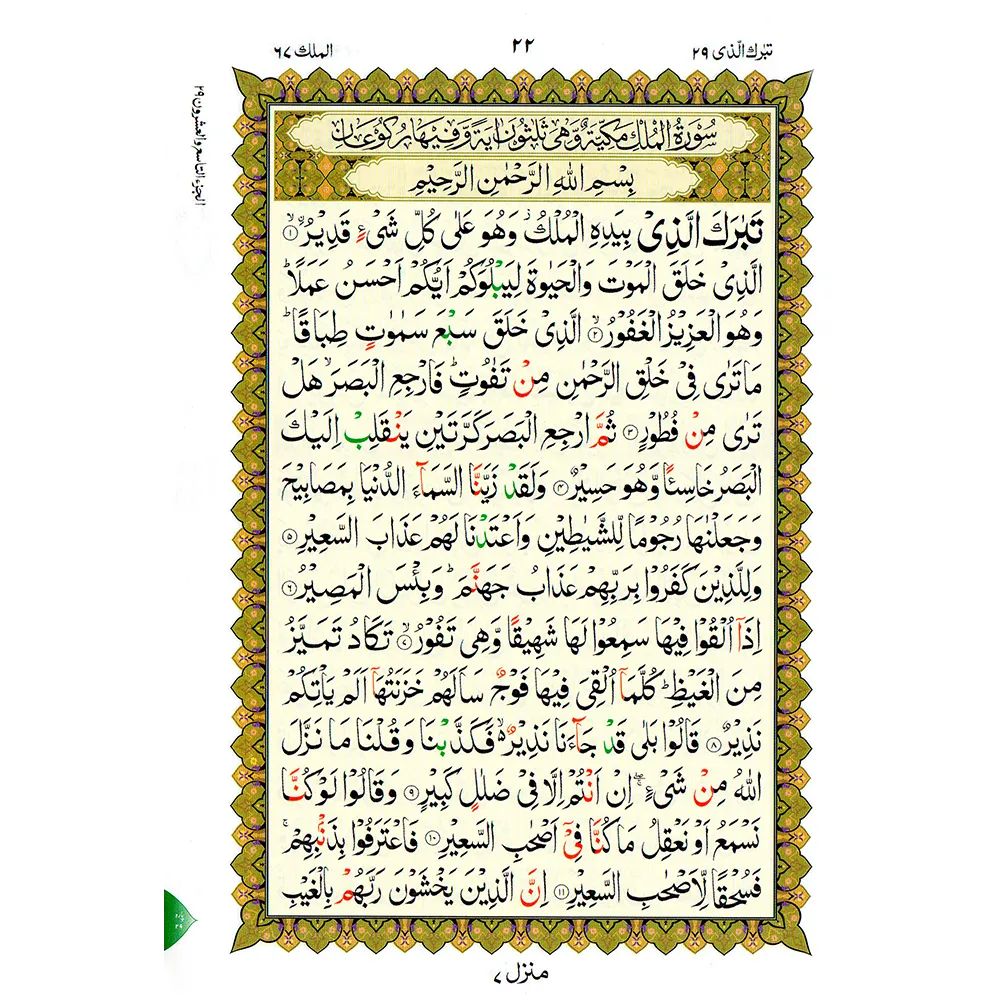 تبرك الّذى ٢٩
٢٢
الملك ٦٧
الجزء التاسع والعشرون ٢٩
سُوْرَةُ الْمُلْكِ مَكِّيَّةٌ وَّهِىَ ثَلٰثُوْنَ اٰيَةً وَّفِيْهَا رُكُوْعَانِ
بِسْمِ اللّٰهِ الرَّحْمٰنِ الرَّحِيْمِ
تَبٰرَكَ الَّذِىْ بِيَدِهِ الْمُلْكُ ز وَهُوَ عَلٰى كُلِّ شَىْءٍ قَدِيْرُ ۨۙ ﴿١﴾
الَّذِىْ خَلَقَ الْمَوْتَ وَالْحَيٰوةَ لِيَبْلُوَكُمْ اَيُّكُمْ اَحْسَنُ عَمَلًا ؕ
وَهُوَ الْعَزِيْزُ الْغَفُوْرُ ۙ ﴿٢﴾ الَّذِىْ خَلَقَ سَبْعَ سَمٰوٰتٍ طِبَاقًا ؕ
مَا تَرٰى فِىْ خَلْقِ الرَّحْمٰنِ مِنْ تَفٰوُتٍ ؕ فَارْجِعِ الْبَصَرَ ۙ هَلْ
تَرٰى مِنْ فُطُوْرٍ ﴿٣﴾ ثُمَّ ارْجِعِ الْبَصَرَ كَرَّتَيْنِ يَنْقَلِبْ اِلَيْكَ
الْبَصَرُ خَاسِئًا وَّهُوَ حَسِيْرٌ ﴿٤﴾ وَلَقَدْ زَيَّنَّا السَّمَآءَ الدُّنْيَا بِمَصَابِيْحَ
وَجَعَلْنٰهَا رُجُوْمًا لِّلشَّيٰطِيْنِ وَاَعْتَدْنَا لَهُمْ عَذَابَ السَّعِيْرِ ﴿٥﴾
وَلِلَّذِيْنَ كَفَرُوْا بِرَبِّهِمْ عَذَابُ جَهَنَّمَ ؕ وَبِئْسَ الْمَصِيْرُ ﴿٦﴾
اِذَآ اُلْقُوْا فِيْهَا سَمِعُوْا لَهَا شَهِيْقًا وَّهِىَ تَفُوْرُ ۙ ﴿٧﴾ تَكَادُ تَمَيَّزُ
مِنَ الْغَيْظِ ؕ كُلَّمَآ اُلْقِىَ فِيْهَا فَوْجٌ سَاَلَهُمْ خَزَنَتُهَآ اَلَمْ يَاْتِكُمْ
نَذِيْرٌ ﴿٨﴾ قَالُوْا بَلٰى قَدْ جَآءَنَا نَذِيْرٌ ۙ فَكَذَّبْنَا وَقُلْنَا مَا نَزَّلَ
اللّٰهُ مِنْ شَىْءٍ ۖ ۚ اِنْ اَنْتُمْ اِلَّا فِىْ ضَلٰلٍ كَبِيْرٍ ﴿٩﴾ وَقَالُوْا لَوْ كُنَّا
نَسْمَعُ اَوْ نَعْقِلُ مَا كُنَّا فِىْٓ اَصْحٰبِ السَّعِيْرِ ﴿١٠﴾ فَاعْتَرَفُوْا بِذَنْۢبِهِمْ ۚ
فَسُحْقًا لِّاَصْحٰبِ السَّعِيْرِ ﴿١١﴾ اِنَّ الَّذِيْنَ يَخْشَوْنَ رَبَّهُمْ بِالْغَيْبِ
پاره
٢٩
منزل ٧